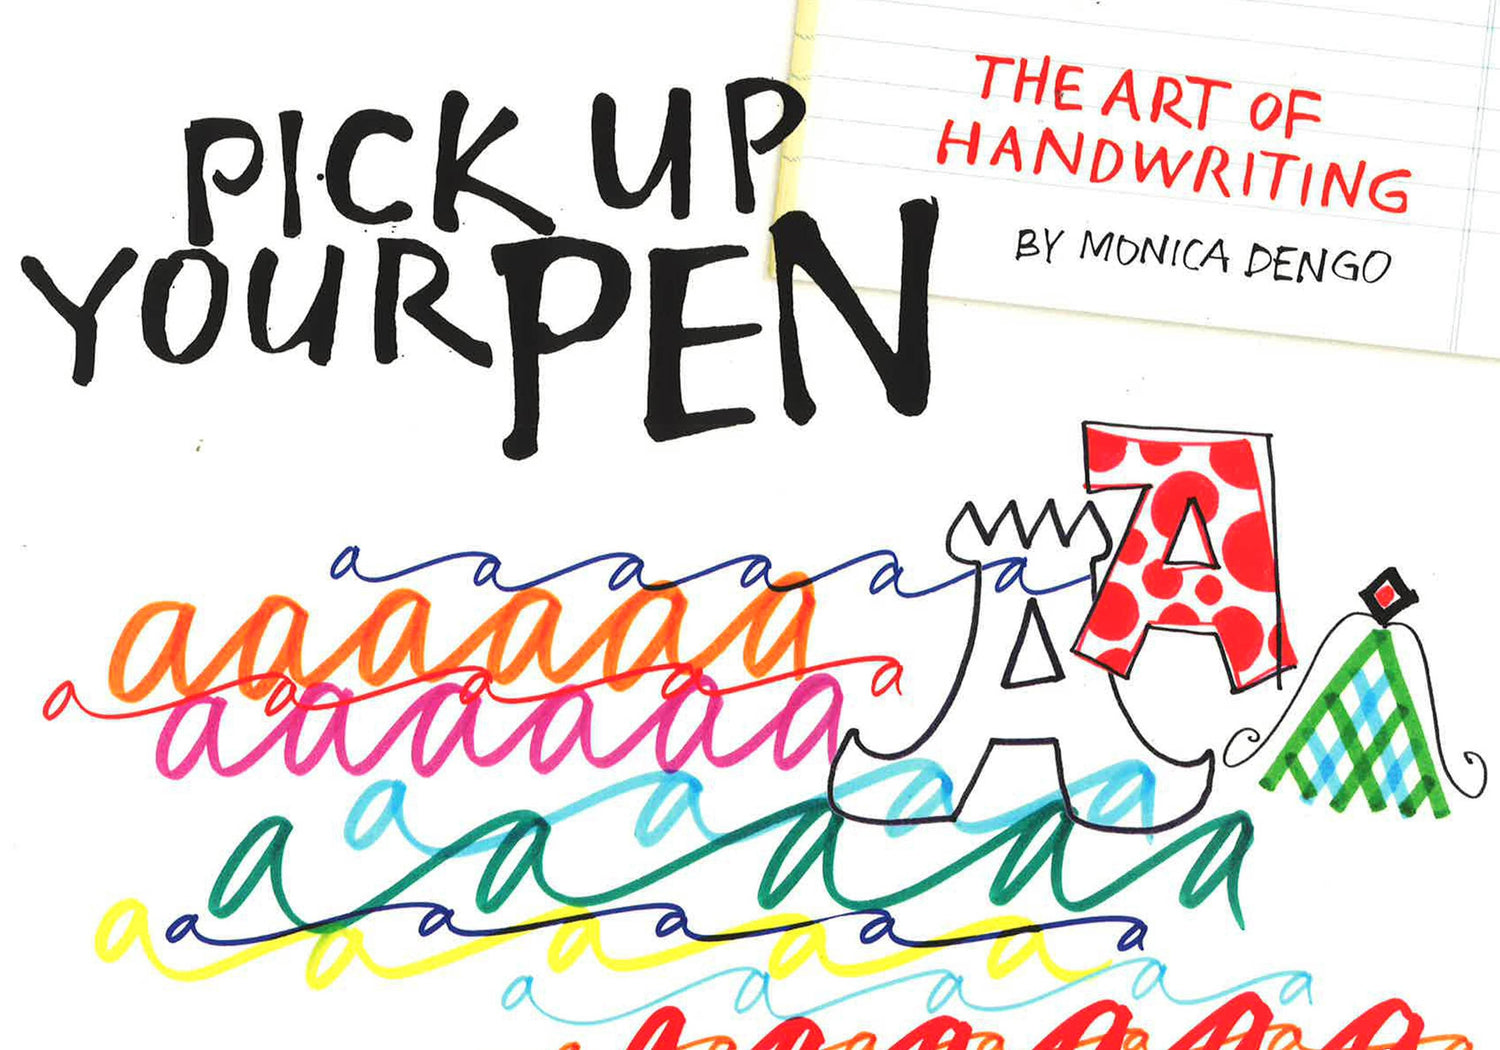 PICK UP
YOUR PEN
THE ART OF
HANDWRITING
BY MONICA DENGO
A A A
a a a a a a
a a a a a a
a a a a a
a a a a a a
a a a a
a a a a a
a a a a a
a a a a a
a a a a a